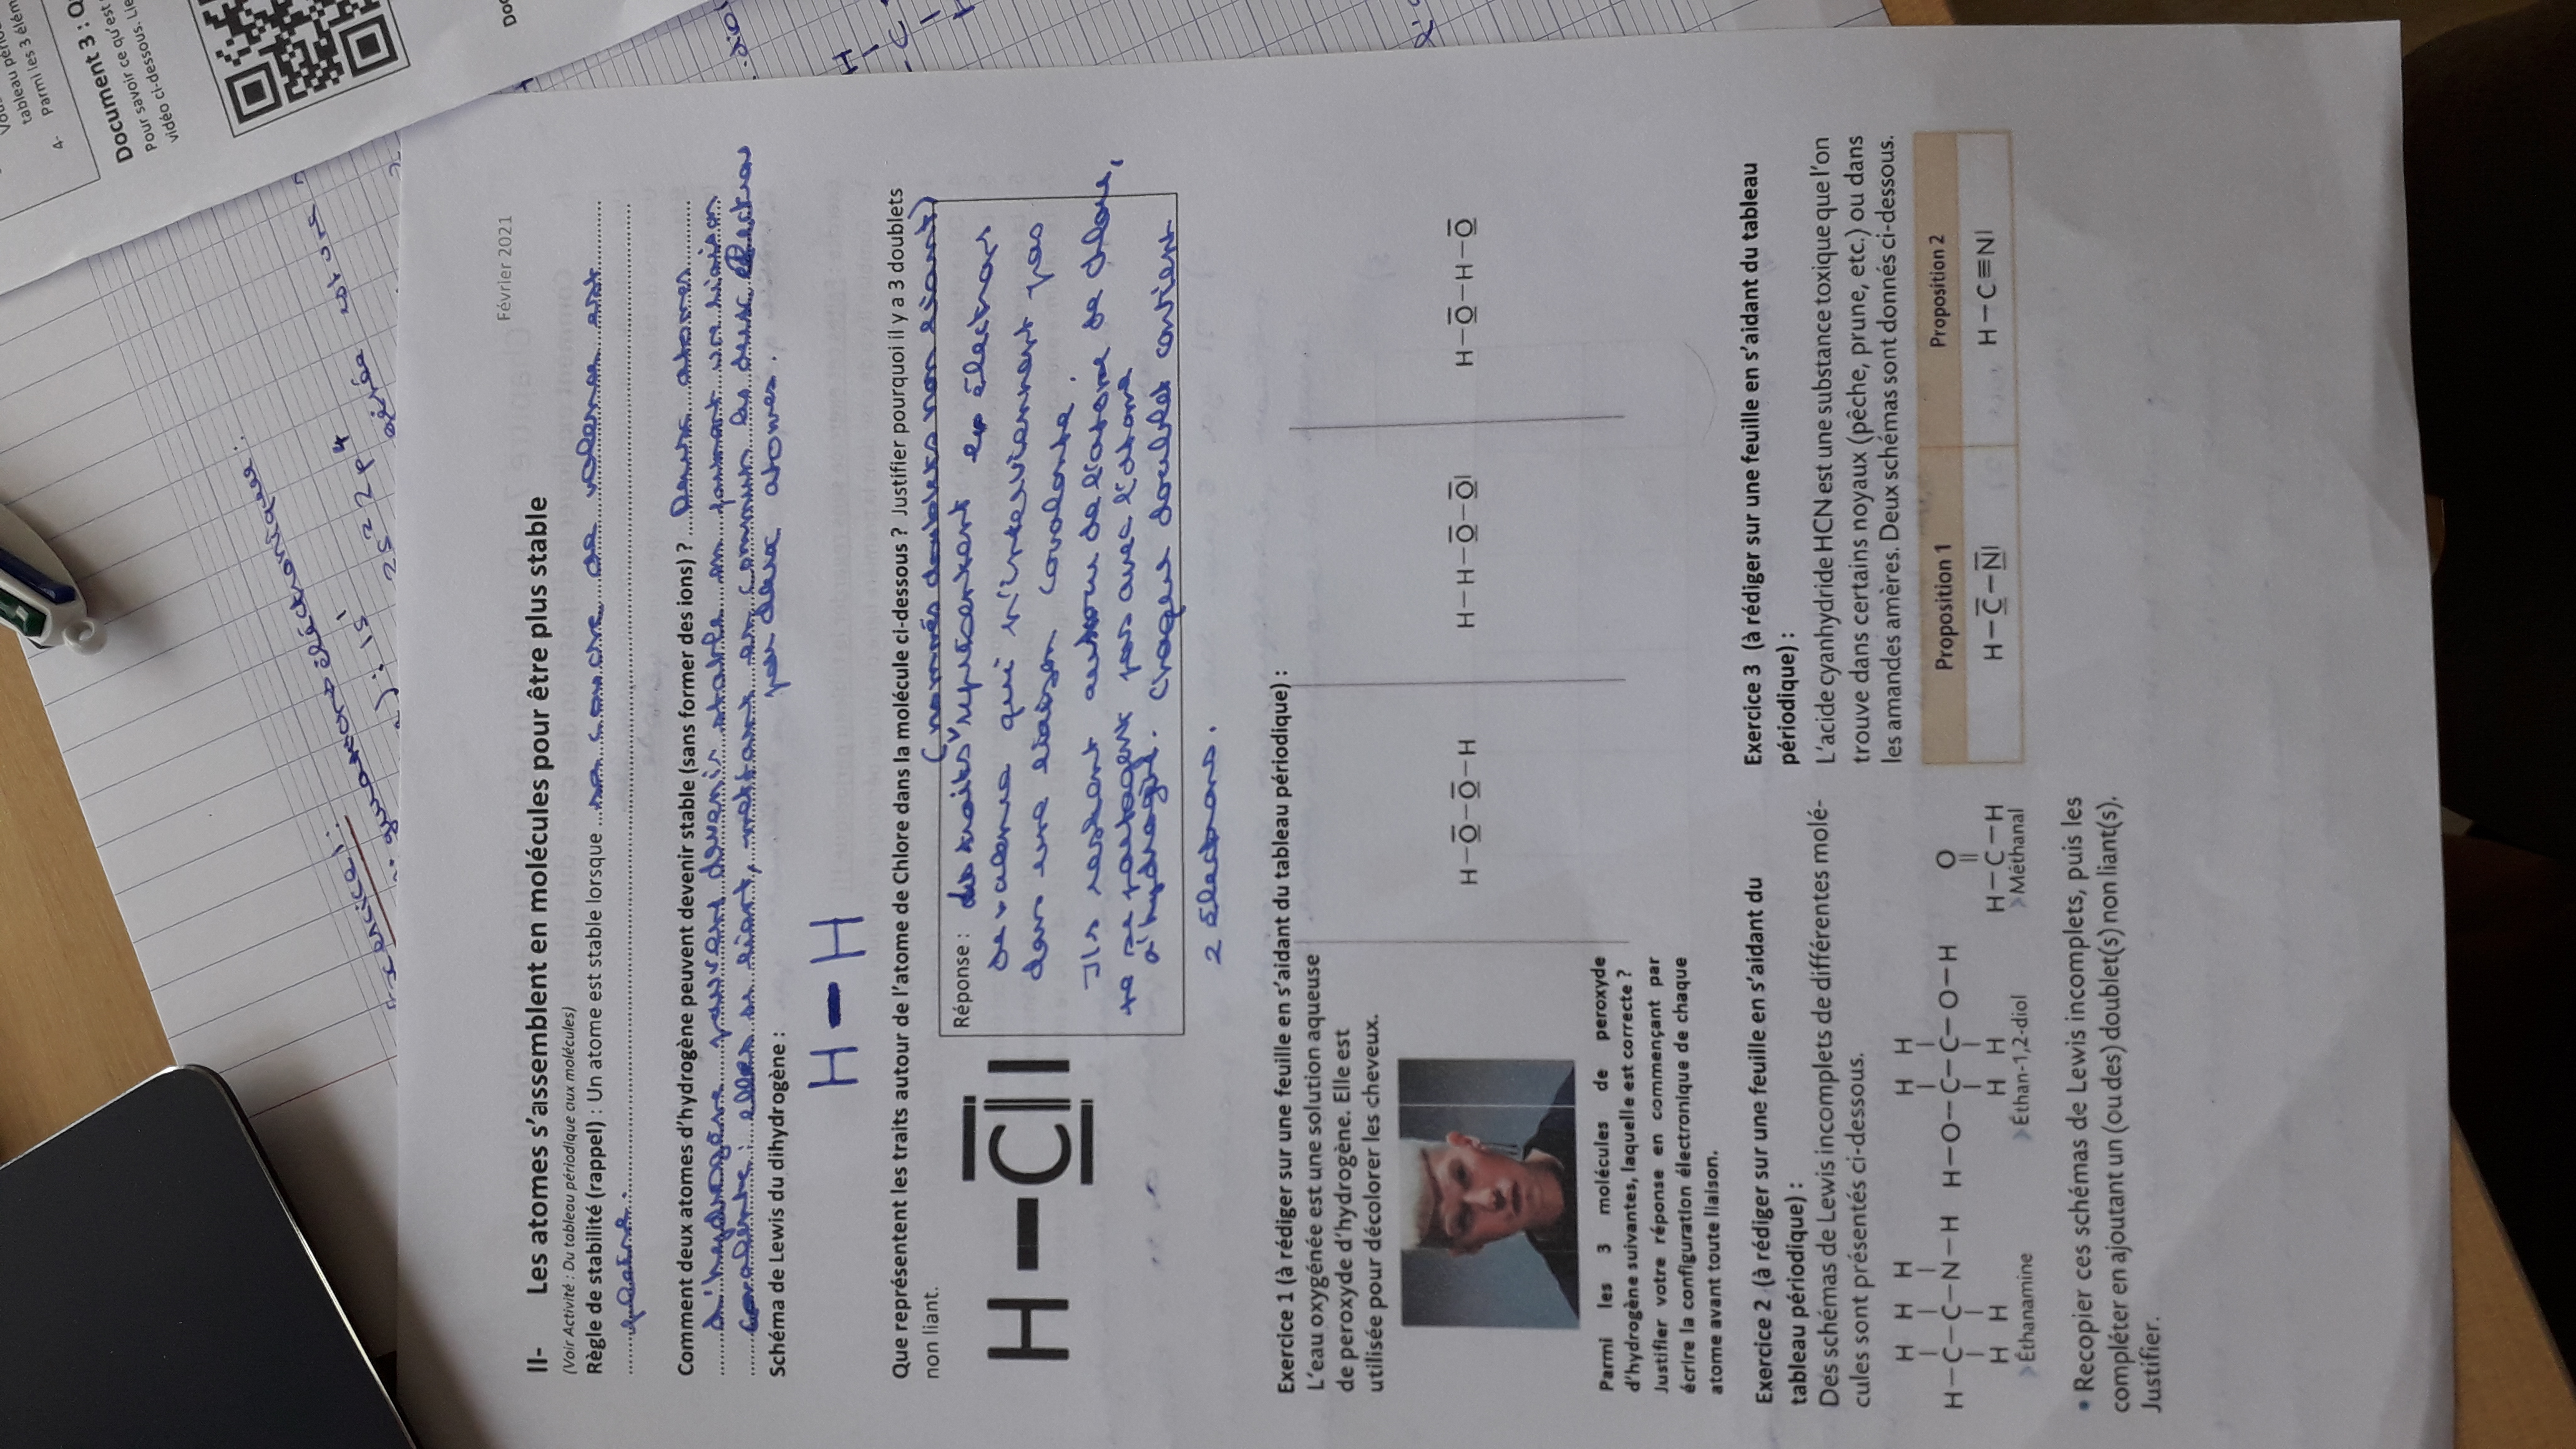 Vous
tableau pério
4- Parmi les 3 élém
Document 3 : Q
Pour savoir ce qu'est
vidéo ci-dessous. Lie
Doc
Exercice 1 :
électronique :
) : 1s¹
2s² 2p⁴
est une
Février 2021
II- Les atomes s'assemblent en molécules pour être plus stable
(Voir Activité : Du tableau périodique aux molécules)
Règle de stabilité (rappel) : Un atome est stable lorsque sa couche de valence est
pleine.
Comment deux atomes d'hydrogène peuvent devenir stable (sans former des ions) ? Deux atomes
d'hydrogène peuvent devenir stable en formant une liaison
covalente : elles se lient, mettant en commun les deux électrons
deux atomes.
Schéma de Lewis du dihydrogène :
H – H
Que représentent les traits autour de l'atome de Chlore dans la molécule ci-dessous ? Justifier pourquoi il y a 3 doublets
non liant.
(nommés doublets non liant)
Réponse : représentent les électrons
de valence qui n'interviennent pas
dans une liaison covalente.
Ils restent autour de l'atome de chlore,
se partagent pas avec l'atome
d'hydrogène. Chaque doublet contient
2 électrons.
H – Cl |
Exercice 1 (à rédiger sur une feuille en s'aidant du tableau périodique) :
L'eau oxygénée est une solution aqueuse
de peroxyde d'hydrogène. Elle est
utilisée pour décolorer les cheveux.
H–O–O–H
H–H–O–O|
H–O–H–O
Parmi les 3 molécules de peroxyde
d'hydrogène suivantes, laquelle est correcte ?
Justifier votre réponse en commençant par
écrire la configuration électronique de chaque
atome avant toute liaison.
Exercice 2 (à rédiger sur une feuille en s'aidant du
tableau périodique) :
Des schémas de Lewis incomplets de différentes molé-
cules sont présentés ci-dessous.
H H H
H–C–C–N–H
H H
Éthanamine
H H
H–O–C–C–O–H
H H
Éthan-1,2-diol
O
H–C–H
Méthanal
• Recopier ces schémas de Lewis incomplets, puis les
compléter en ajoutant un (ou des) doublet(s) non liant(s).
Justifier.
Exercice 3 (à rédiger sur une feuille en s'aidant du tableau
périodique) :
L'acide cyanhydride HCN est une substance toxique que l'on
trouve dans certains noyaux (pêche, prune, etc.) ou dans
les amandes amères. Deux schémas sont donnés ci-dessous.
Proposition 1
Proposition 2
H–C–N|
H–C≡N|